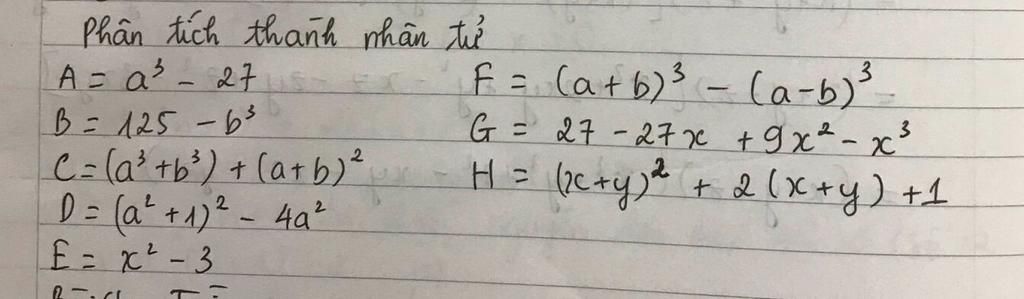 Phân tích thành nhân tử
A = a³ - 27
B = 125 - b³
C = (a³ + b³) + (a+b)²
D = (a² + 1)² - 4a²
E = x² - 3
F = (a+b)³ - (a-b)³
G = 27 - 27x + 9x² - x³
H = (x+y)² + 2(x+y) + 1